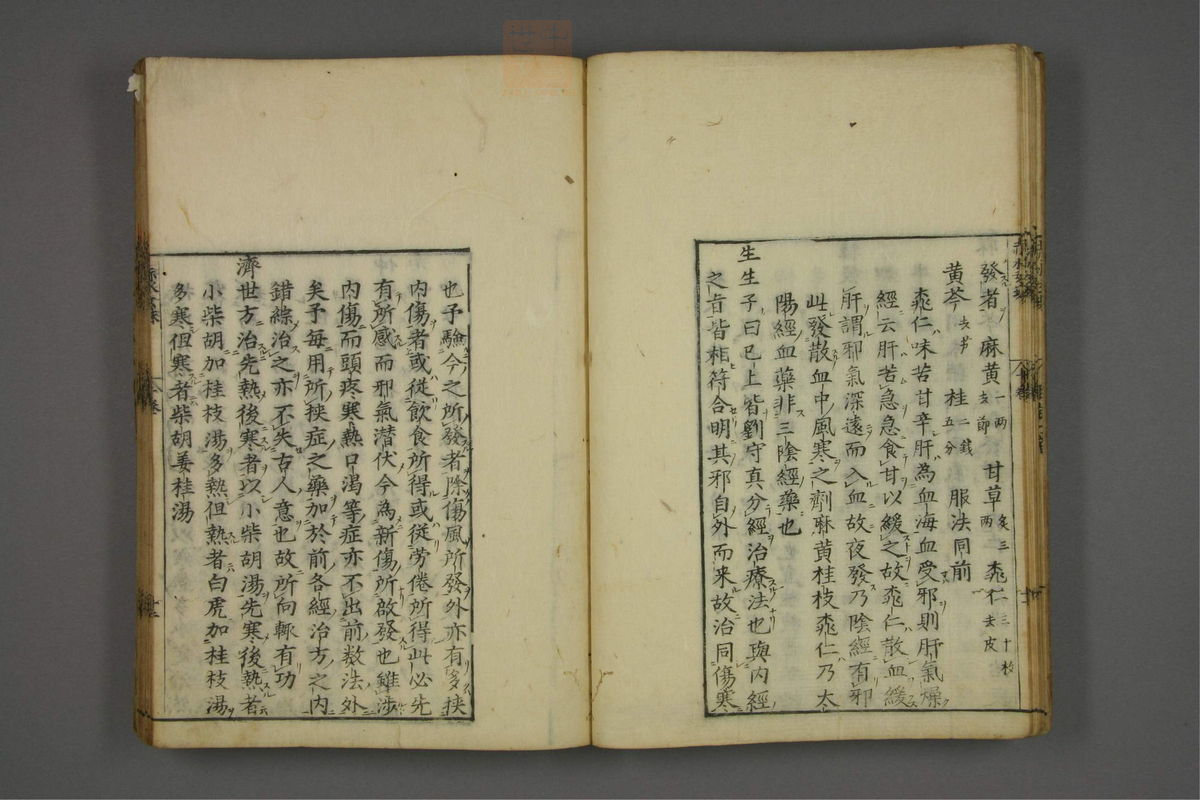 發者麻黄一兩去節甘草炙三兩桃仁三十枚去皮
黄芩去䒷桂二錢五分服法同前
桃仁味苦甘辛肝為血海血受邪則肝氣燥
經云肝苦急急食甘以緩之故桃仁散血緩
肝謂邪氣深遠而入血故夜發乃陰經有邪
此發散血中風寒之劑麻黄桂枝桃仁乃太
陽經血藥非三陰經藥也
生生子曰已上皆劉守真分經治療法也與内經
之㫖皆相符合明其邪自外而来故治同傷寒
也予驗今之所發者除傷風所發外亦有多挟
内傷者或從飲食所得或從労倦所得此必先
有所感而邪氣潜伏今為新傷所啟發也雖渉
内傷而頭疼寒熱口渴等症亦不出前数法外
矣予每用所挟症之藥加於前各經治方之内
錯綜治之亦不失古人意也故所向輙有功
濟世方治先熱後寒者以小柴胡湯先寒後熱者
小柴胡加桂枝湯多熱但熱者白虎加桂枝湯
多寒但寒者柴胡姜桂湯